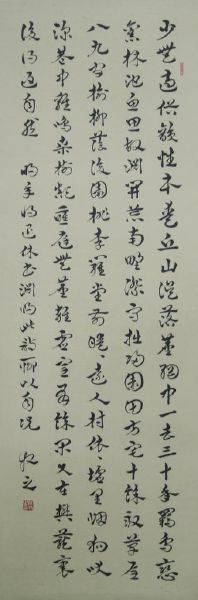 少無適俗韻性本愛丘山誤落塵網中一去三十年羈鳥戀
舊林池魚思故淵開荒南野際守拙歸園田方宅十餘畝草屋
八九間榆柳蔭後園桃李羅堂前曖曖遠人村依依墟里煙狗吠
深巷中雞鳴桑樹顛戶庭無塵雜虛室有餘閑久在樊籠裏
復得返自然 退休書淵明此詩聊以自況